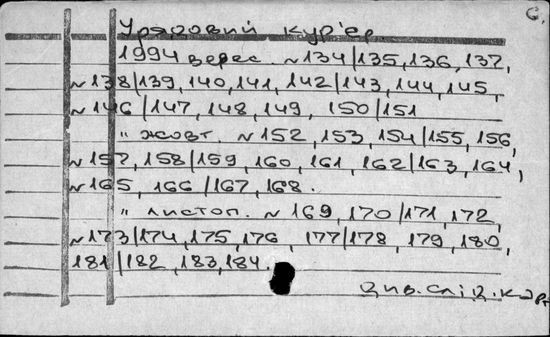 6.
Урядовий кур'єр.
1994 верес. №134/135,136,137,
№138/139, 140,141, 142/143, 144,145,
№146/147, 148, 149, 150/151
" жовт. №152,153,154/155,156,
№157,158/159,160,161,162/163,164,
№165,166/167,168.
" листоп. №169,170/171,172,
№173/174,175,176, 177/178, 179,180,
181/182,183,184.
Див. слід. карт